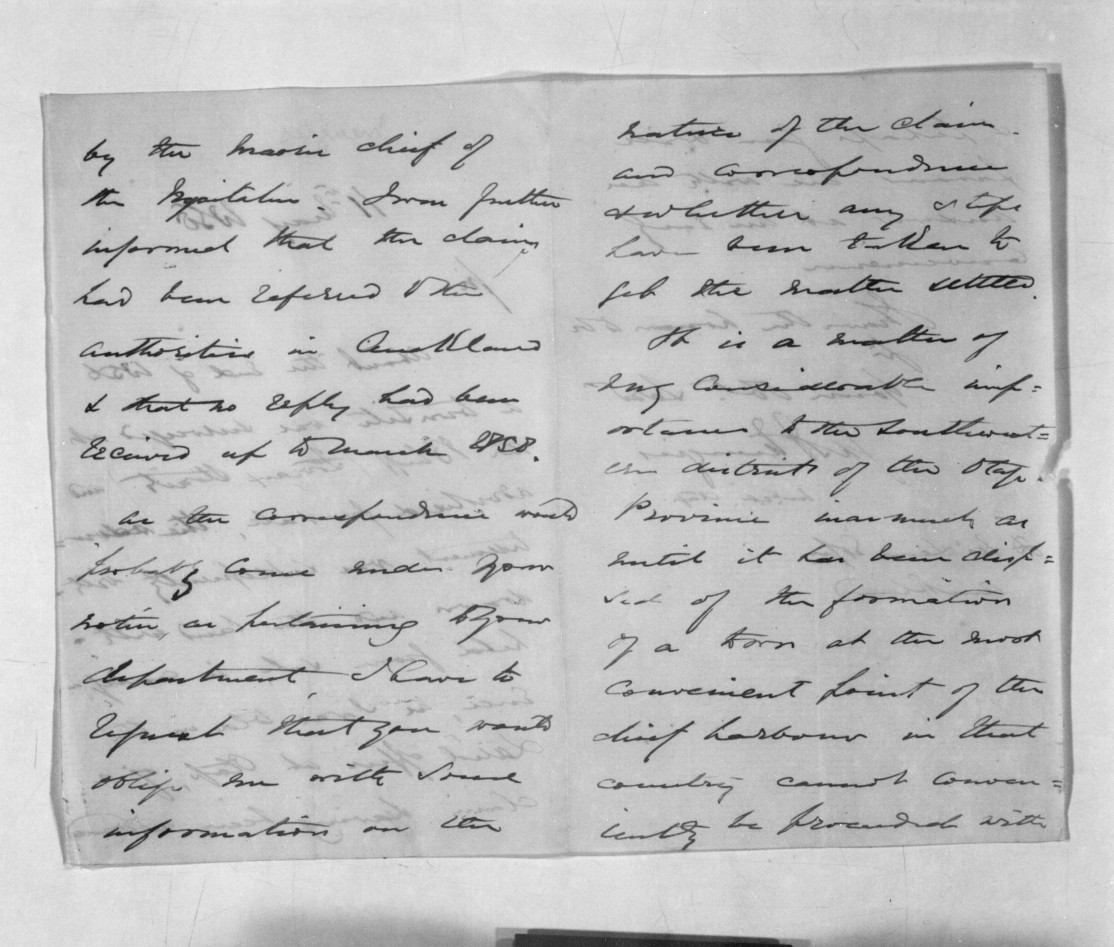 by the Maori chief of
the Ngaitahu I was further
informed that the claims
had been referred to the
authorities in Auckland
& that no reply had been
received up to March 1858.
as the correspondence would
probably come under your
notice as pertaining to your
department, I have to
request that you would
oblige me with some
information on the
nature of the claim
and correspondence
& whether any steps
have been taken to
get the matter settled.
It is a matter of
very considerable imp=
ortance to the southwest=
ern districts of the Otago
Province inasmuch as
until it has been disp=
sed of the formation
of a town at the most
convenient point of the
chief harbour in that
country cannot conven=
iently be proceeded with